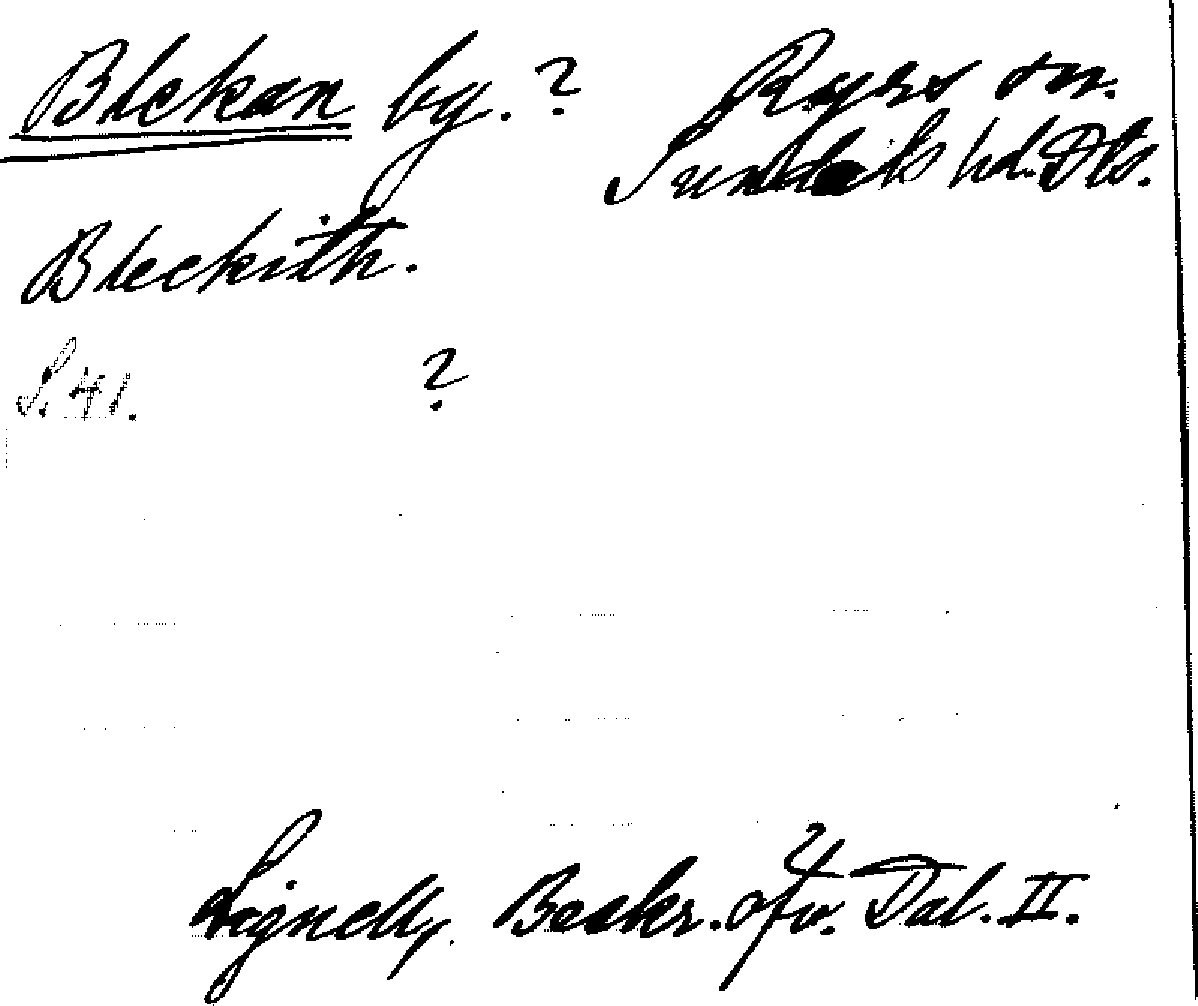 Blekan by. ? Ryrs sn.
Sundals hd. Dls.
Bleckith.
S. 41. ?
Lignell, Beskr. öfv. Dal. II.